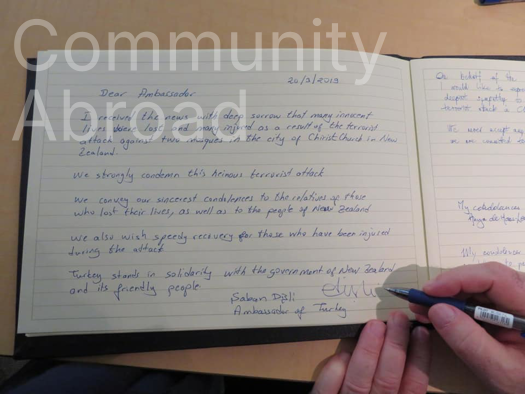 Community
Abroad
20/3/2019
Dear Ambassador
I received the news with deep sorrow that many innocent
lives were lost and many injured as a result of the terrorist
attack against two mosques in the city of Christ Church in New
Zealand.
We strongly condemn this heinous terrorist attack
We convey our sincerest condolences to the relatives of those
who lost their lives, as well as to the people of New Zealand
We also wish speedy recovery for those who have been injured
during the attack
Turkey stands in solidarity with the government of New Zealand
and its friendly people
Şaban Dişli
Ambassador of Turkey
On behalf of the
I would like to
deepest sympathy
terrorist attack
My condolences